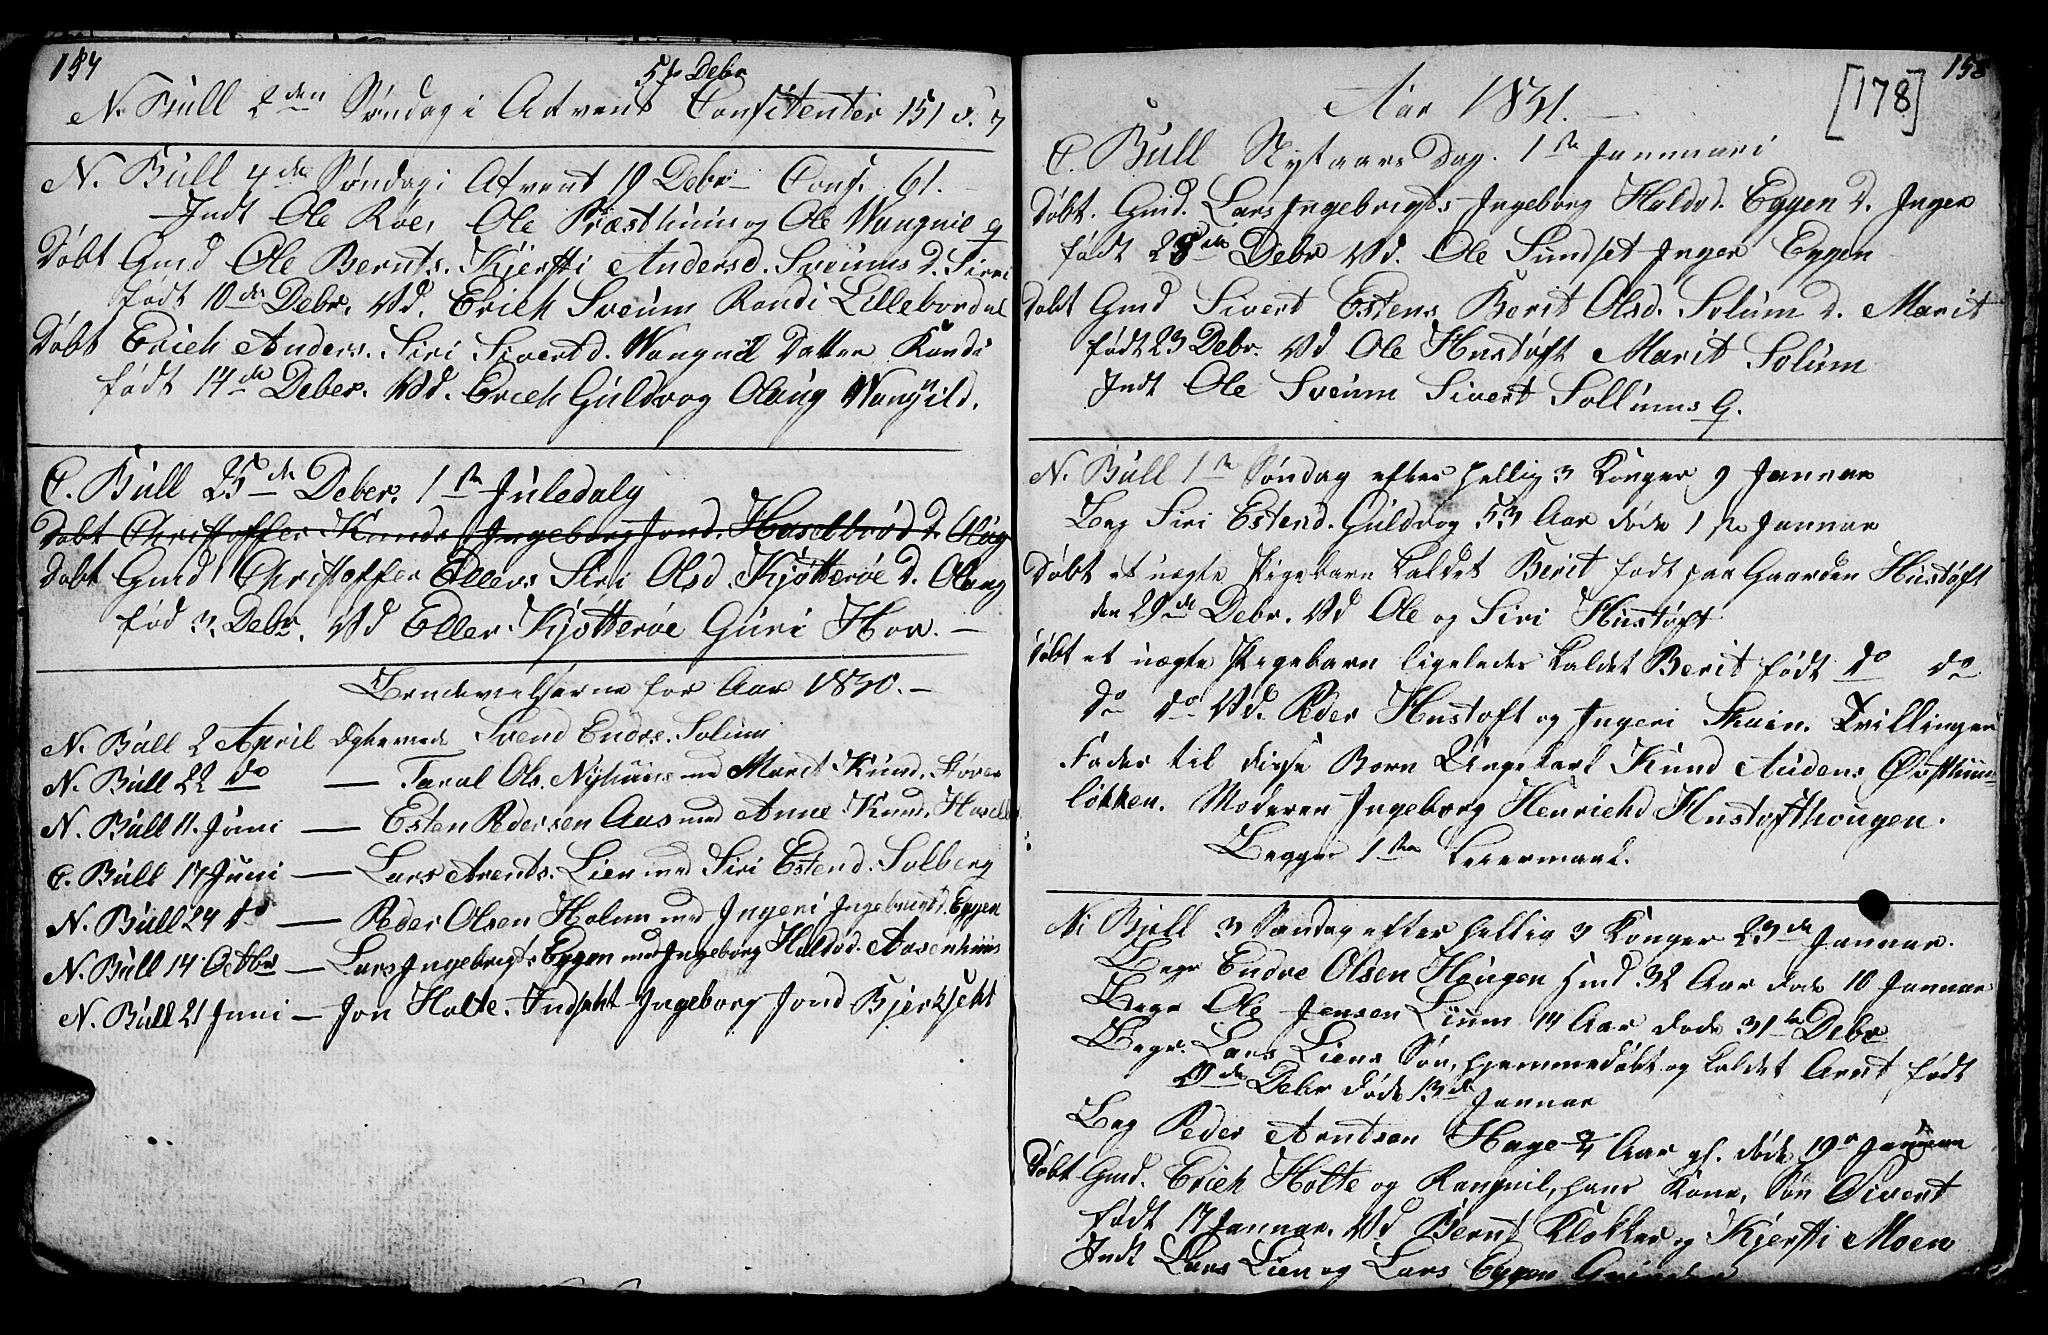 157
5te Debr
N. Bull 2den Søndag i Advent Confitenter 151
N. Bull 4de Søndag i Advent 19 Debr Conf. 61.
Indt Ole Røe, Ole Præsthuus og Ole Wangnie
Døbt Gmd Ole Bernts. Kjersti Andersd. Sveums D. Siri
født 10de Debr. Vd. Erich Sveum Randi Lillebordal
Døbt Erich Anders. Siri Sivertd. Wangnild Datter Randi
født 14de Deber. Vd. Erich Guldvog Olaug Wangnild.
C. Bull 25de Deber. 1ste Juledalg
Døbt Christoffer Knuds Ingeborg Jond. Haselbrød D. Olög
Døbt Gmd Christoffer Ellevs Siri Olsd. Kjøtterøe D. Olaug
fød 3. Debr. Vd Eller Kjøtterøe Guri Hov.
Brudevielserne for Aar 1830.
N. Bull 2 April Svend Endrs. Solum
N. Bull 22 do — Taral Ols. Nyhuus med Marit Knud. Støver
N. Bull 11. Juni — Esten Pedersen Aas med Anne Knud.
C. Bull 17 Juni — Lars Arends. Lien med Siri Estend. Solberg
N. Bull 24 do — Peder Olsen Holum med Ingeri Ingebrigtd. Eggen
N. Bull 14 Octbr — Lars Ingebrigts Eggen med Ingeborg Haldvd. Aasenhuus
N. Bull 21 Juni — Jon Holte. Indsett Ingeborg Jond Bjerksett
158
[178]
Aar 1831.
C. Bull Nytaars Dag. 1ste Jannuari
Døbt. Gmd. Lars Ingebrigts Ingeborg Haldvd. Eggen D. Inger
født 28de Debr Vd. Ole Sundset Inger Eggen
Døbt Gmd Sivert Estens Berit Olsd. Solum D. Marit
født 23 Debr. Vd Ole Hustøft Marit Solum
Indt Ole Sveum Sivert Sollums
N. Bull 1ste Søndag efter hellig 3 Konger 9 Januar
Beg Siri Estend. Guldvog 53 Aar døde 1ste Januar
Døbt et uægte Pigebarn kaldet Berit født paa Gaarden Hustøft
den 29de Debr. Vd Ole og Siri Hustøft
Døbt et uægte Pigebarn ligeledes kaldet Berit født do do
do do Vd. Peder Hustoft og Ingeri Skain. Tvillinger
Fader til disse Børn Ungekarl Knud Audens Østhuus-
løkken. Moderen Ingeborg Henrichd Hustofthougen.
Begge 1ste Leiermaal.
N. Bull 3 Søndag efter hellig 3 Konger 23de Januar.
Begr Endre Olsen Hougen Hmd 32 Aar døde 10 Januar
Begr Ole Jensen Lium 14 Aar døde 31te Debr
Begr. Lars Liens Søn, hjemmedøbt og kaldet Arnt, født
9de Debr døde 13de Januar
Beg Peder Arntsen Hage Aar gl. døde 19de Januar
Døbt Gmd. Erich Holte og Rangnil, hans Kone, Søn Sivert
født 17 Januar. Vd Bernt Klokker og Kjersti Moen
Indt Lars Lien og Lars Eggen